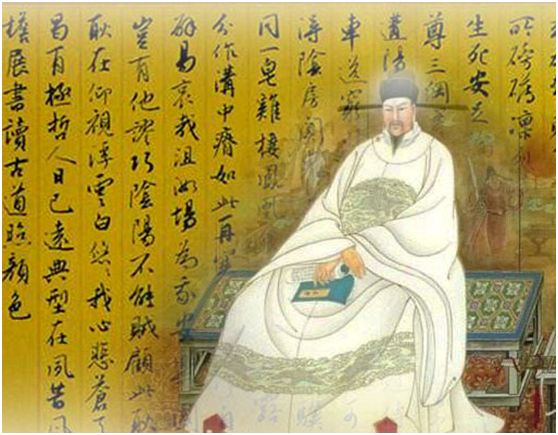 所磅礴凛
生死安足
尊三綱
遘陽
車送窮
陰房闃
同一皁雞棲鳳凰
分作溝中瘠如此再
辟易哀哉沮洳場為我
豈有他謬巧陰陽不能賊顧此耿
耿在仰視浮雲白悠悠我心悲蒼天
曷有極哲人日已遠典型在夙昔風
檐展書讀古道照顏色